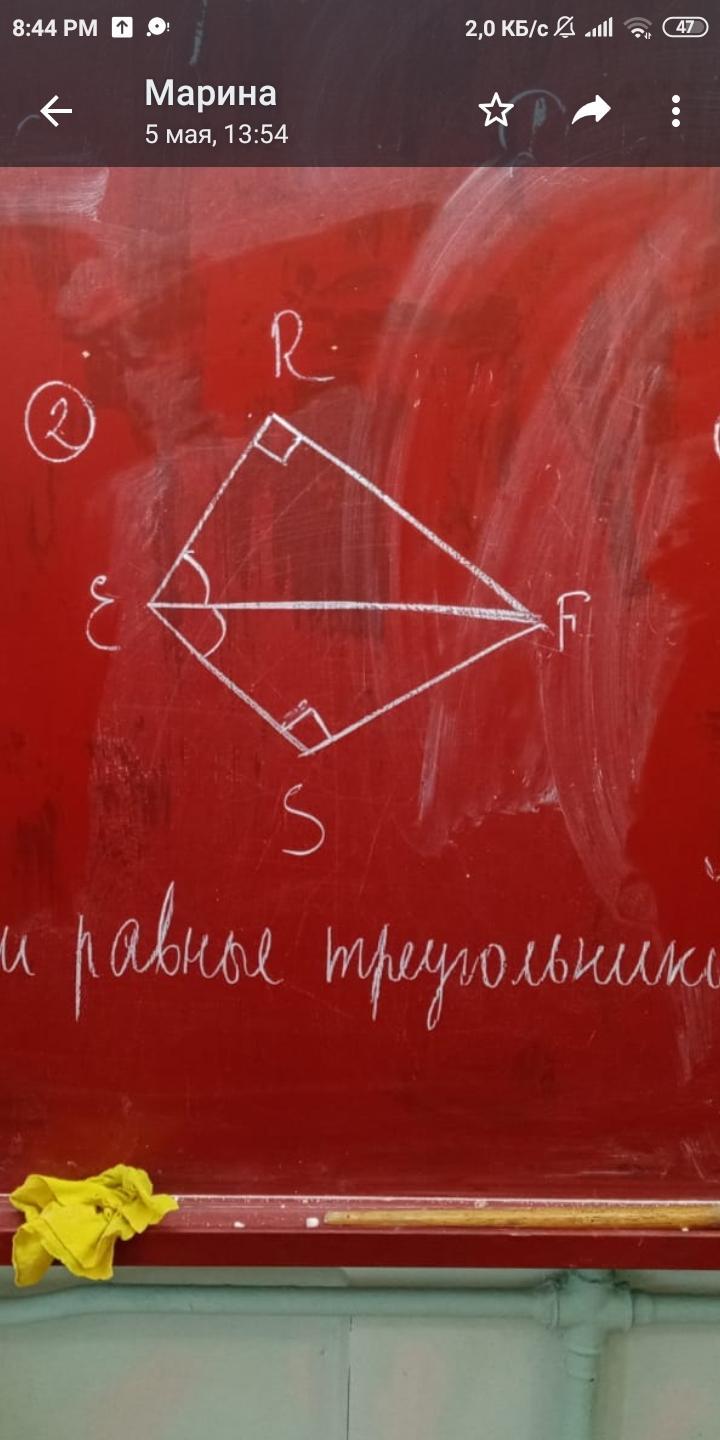 8:44 PM 2,0 КБ/с 47
Марина
5 мая, 13:54
R
2
E F
S
и равные треугольники